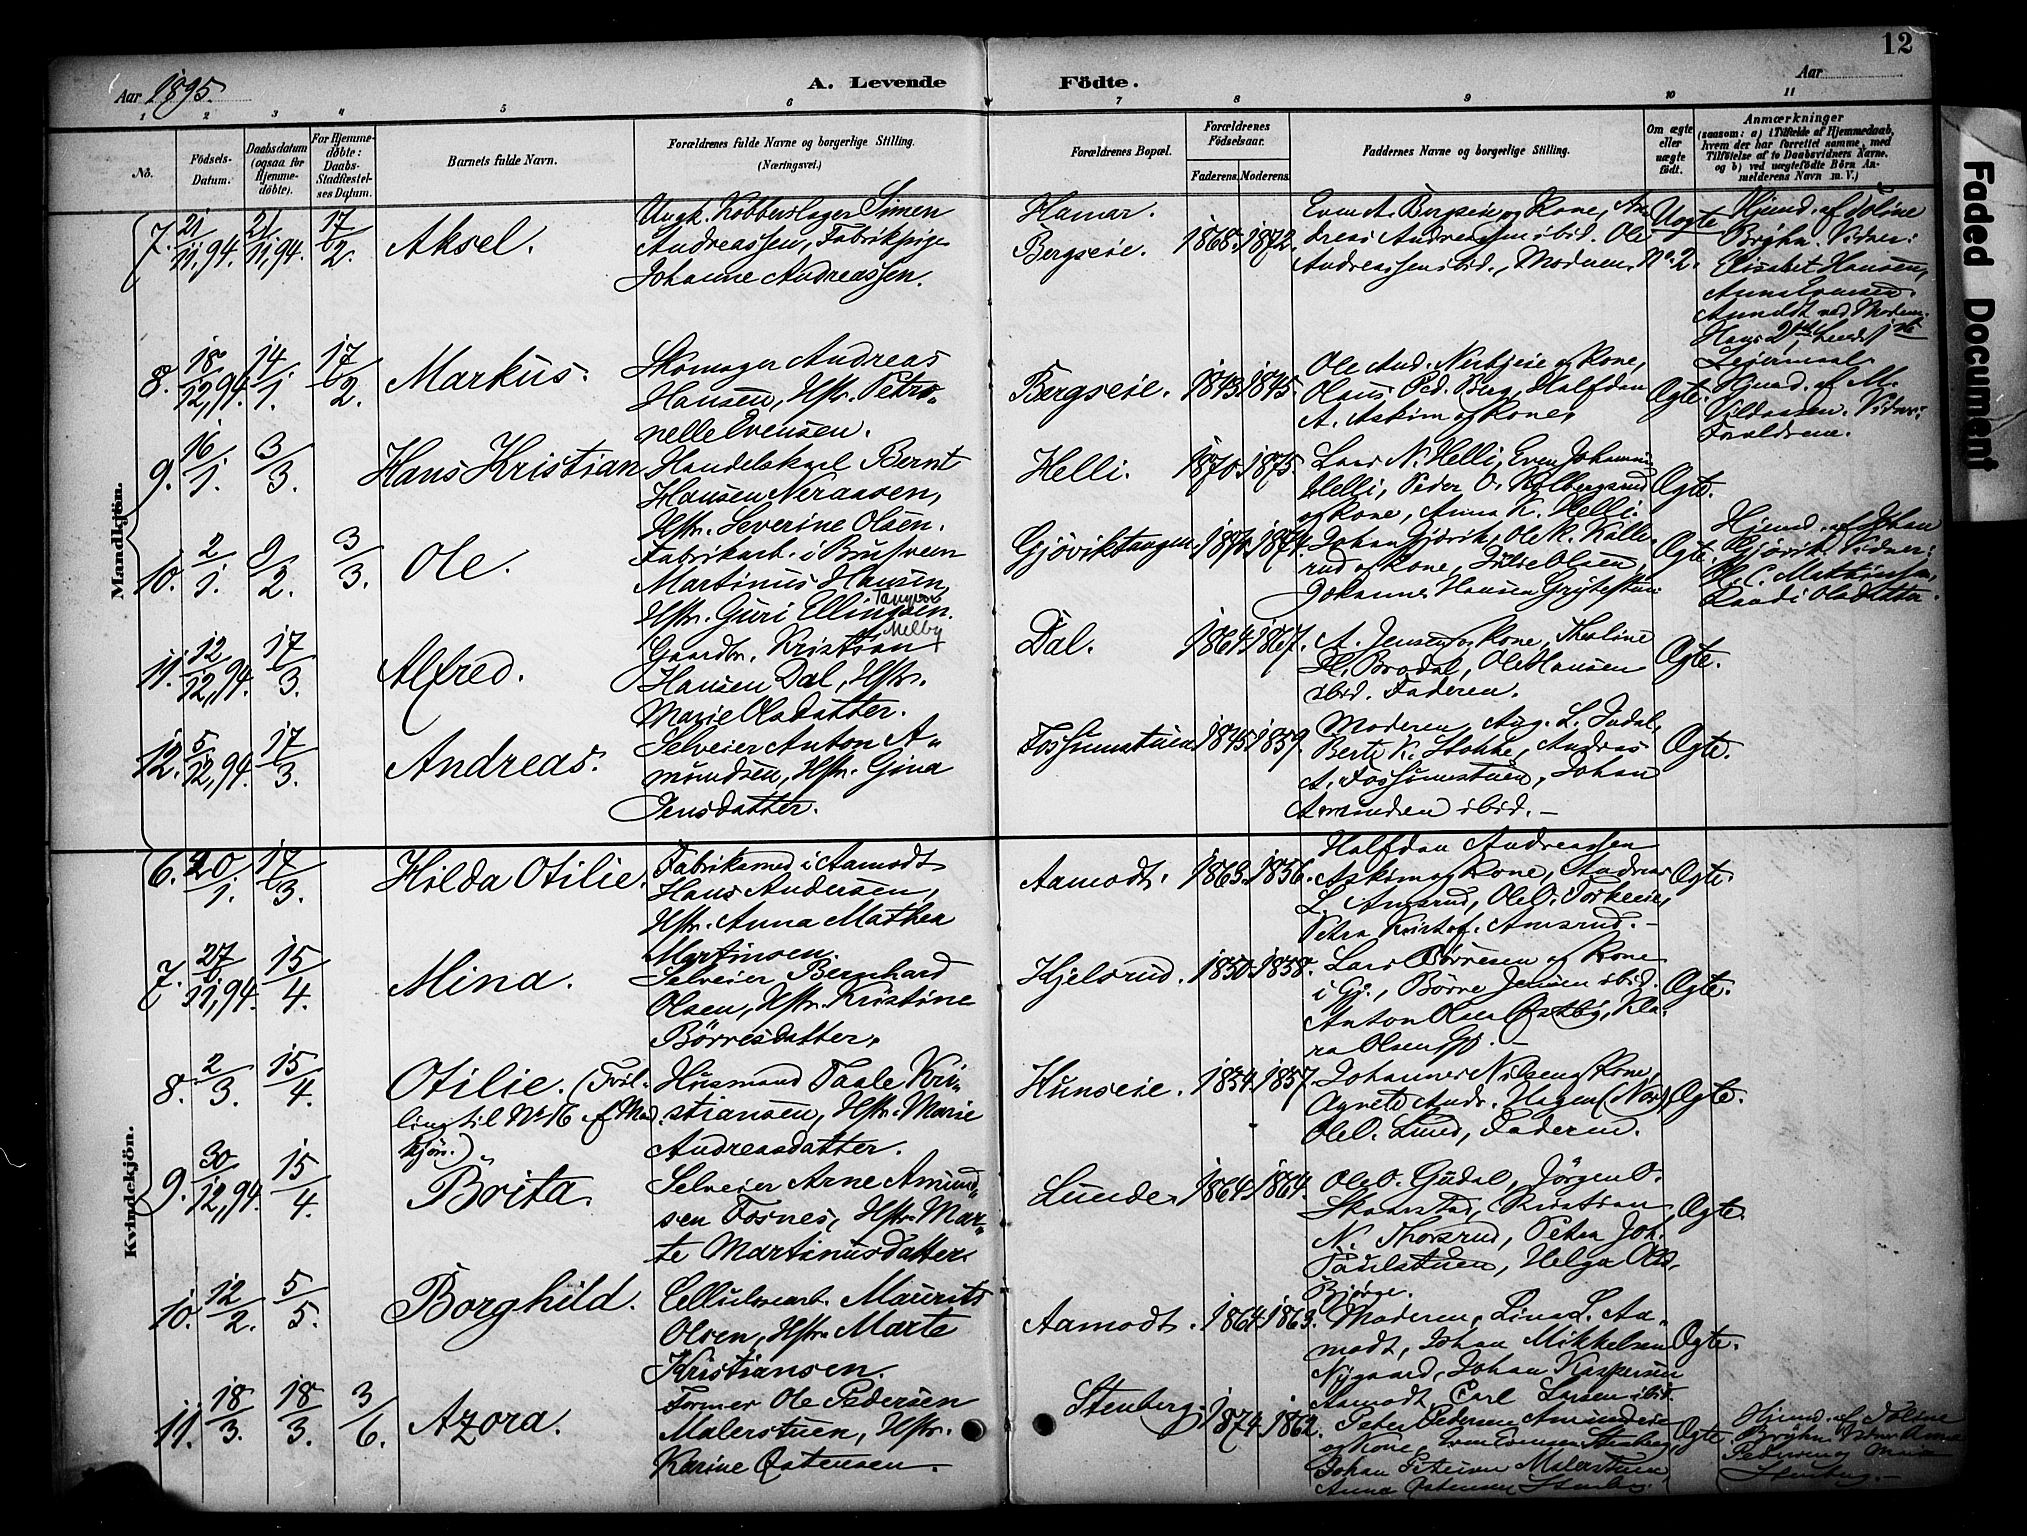 12
Aar 1895.
A. Levende Födte.
Aar
1 2 3 4 5 6 7 8 9 10 11
No.
Födsels-Datum.
Daabsdatum (ogsaa for Hjemme-döbte).
For Hjemme-döbte: Daabs-Stadfæstelses Datum.
Barnets fulde Navn.
Forældrenes fulde Navne og borgerlige Stilling. (Næringsvei.)
Forældrenes Bopæl.
Forældrenes Födselsaar.
Faderens. Moderens.
Faddernes Navne og borgerlige Stilling.
Om ægte eller uægte födt.
Anmærkninger
(saasom: a) i Tilfælde af Hjemmedaab, hvem der har forrettet samme, med Tilföielse af to Daabsvidners Navne, og b) ved uægtefödte Börn Anmelderens Navn m. V.)
Mandkjön.
7. 21/11,94. 21/11,94. 17/2. Aksel.
Ungk. Kobberslager Simen
Andreassen, Fabrikpige
Johanne Andreassen.
Hamar.
Bergseie.
1868. 1872.
Even A. Bergseie og Kone, An-
dreas Andreassen ibid. Ole
Andreassen ibid., Moderen.
Uægte
No 2.
Hjmd. af Joline
Bröhn. Vidner:
Elisabet Hansen,
Anna Evensen.
Anmeldt ved Moderen.
Hans 2det, hendes 1ste
Leiermaal.
8. 18/12,94. 14/1. 17/2. Markus.
Skomager Andreas
Hansen, Hstr. Petro-
nelle Evensen.
Bergseie. 1843. 1845.
Ole And. Nerbyeie og Kone,
Olaus Ped. Berg, Halfdan
A. Askim og Kone.
Ægte.
Hjmd. af M.
Vildaasen. Vidner:
Forældrene.
9. 16/1. 3/3. Hans Kristian
Handelskarl Bernt
Hansen Neraasen,
Hstr. Severine Olsen.
Helli. 1870. 1875.
Lars N. Helli, Even Johannes
Helli, Peder O. Kolbergsrud
og Kone, Anna K. Helli.
Ægte.
10. 2/1. 9/2. 3/3. Ole.
Fabrikarb. i
Martinus Hansen,
Hstr. Guri Ellingsen.
Gjöviktangen. 1874.
Johan Gjövik, Ole K. Kalle-
rud og Kone, Julie Olsen,
Johannes Hansen
Ægte.
Hjmd. af Johan
Gjövik. Vidner:
K. C. Mathiassen,
Randi Olsdatter.
11. 12/12,94. 17/3. Alfred.
Melby
Gaardbr. Kristian
Hansen Dal, Hstr.
Marie Olsdatter.
Dal. 1864. 1867.
A. Jensen og Kone, Theoline
H. Brodal, Ole Hansen
ibid. Faderen.
Ægte.
12. 5/12,94. 17/3. Andreas.
Selveier Anton A-
mundsen, Hstr. Gina
Jensdatter.
Fossumstuen 1845. 1859.
Moderen, Aug. L. Indal,
Berte K. Stokke, Andreas
A. Fossumstuen, Johan
Amundsen ibid.-
Ægte.
Kvindekjön.
6. 20/1. 17/3. Hilda Otilie.
Fabriksmed i Aamodt
Hans Andersen,
Hstr. Anna Mathea
Martinsen.
Aamodt. 1863. 1856.
Halfdan Andreassen
Askim og Kone, Andreas
L. Amsrud, Ole O. Torkeeie,
Petra Kristof. Amsrud.-
Ægte.
7. 27/11,94. 15/4. Mina.
Selveier Bernhard
Olsen, Hstr. Kristine
Börresdatter.
Hjelsrud. 1850. 1858.
Lars Börresen og Kone
i Gj., Börre Jensen ibid.
Anton Olsen Östby, Kla-
ra Olsen Gj.-
Ægte.
8. 2/3. 15/4. Otilie. (Tvil-
ling til No 16 af Mand-
kjön.)
Husmand Taale Kri-
stiansen, Hstr. Marie
Andreasdatter.
Hunseie. 1854. 1857.
Johannes Nilsen og Kone,
Agnete Andr. Hagen (Nor),
Ole O. Lund, Faderen.
Ægte.
9. 30/12,94. 15/4. Brita.
Selveier Arne Amund-
sen Fosnes, Hstr. Mar-
te Martinusdatter.
Lunde. 1864. 1864.
Ole O. Gudal, Jörgen O.
Skaarstad, Kristian
N. Thorsrud, Petra Joh.
Paulstuen, Helga Ols.
Bjerge.
Ægte.
10. 12/2. 5/5. Borghild.
Cellulosearb. Maurits
Olsen, Hstr. Marte
Kristiansen.
Aamodt. 1864. 1863.
Moderen, Lina L. Aa-
modt, Johan Mikkelsen
Nygaard, Johan Kaspersen
Aamodt, Carl Larsen ibid.
Ægte.
11. 18/3. 18/3. 3/6. Azora.
Former Ole Pedersen
Malerstuen, Hstr.
Karine Östensen.
Stenberg. 1874. 1862.
Peter Pedersen Amundeie
og Kone, Even Evensen Stenberg,
Johan Petersen Malerstuen,
Anna Östensen Stenberg.
Ægte.
Hjmd. af Joline
Bröhn. Vidner Anna
Pedersen og Maria
Stenberg.-
Faded Document